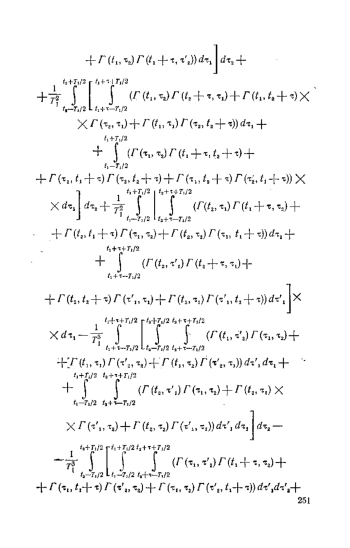 + Γ (t₁, τ₂) Γ (t₁ + τ, τ'₂)) dτ₁ ] dτ₂ +
+ 1/T₁² ∫_{t₂−T₁/2}^{t₂+T₁/2} [ ∫_{t₁+τ−T₁/2}^{t₁+τ+T₁/2} (Γ (t₁, t₂) Γ (t₂ + τ, τ₁) + Γ (t₁, t₂ + τ) ×
× Γ (τ₂, τ₁) + Γ (t₁, τ₁) Γ (τ₂, t₂ + τ)) dτ₁ +
+ ∫_{t₁−T₁/2}^{t₁+T₁/2} (Γ (τ₁, τ₂) Γ (t₁ + τ, t₂ + τ) +
+ Γ (τ₁, t₁ + τ) Γ (τ₂, t₂ + τ) + Γ (τ₁, t₂ + τ) Γ (τ₂, t₁ + τ)) ×
× dτ₁ ] dτ₂ + 1/T₁² ∫_{t₁−T₁/2}^{t₁+T₁/2} [ ∫_{t₂+τ−T₁/2}^{t₂+τ+T₁/2} (Γ(t₂, τ₁) Γ (t₁ + τ, τ₂) +
+ Γ (t₂, t₁ + τ) Γ (τ₁, τ₂) + Γ (t₂, τ₂) Γ (τ₁, t₁ + τ)) dτ₂ +
+ ∫_{t₁+τ−T₁/2}^{t₁+τ+T₁/2} (Γ (t₂, τ'₁) Γ (t₂ + τ, τ₁) +
+ Γ (t₂, t₂ + τ) Γ (τ'₁, τ₁) + Γ (t₂, τ₁) Γ (τ'₁, t₂ + τ)) dτ'₁ ] ×
× dτ₁ − 1/T₁³ ∫_{t₁+τ−T₁/2}^{t₁+τ+T₁/2} [ ∫_{t₂−T₁/2}^{t₂+T₁/2} ∫_{t₂+τ−T₁/2}^{t₂+τ+T₁/2} (Γ (t₁, τ'₂) Γ (τ₁, τ₂) +
+ Γ (t₁, τ₁) Γ (τ'₂, τ₂) + Γ (t₁, τ₂) Γ (τ'₂, τ₁)) dτ'₂ dτ₂ +
+ ∫_{t₁−T₁/2}^{t₁+T₁/2} ∫_{t₂+τ−T₁/2}^{t₂+τ+T₁/2} (Γ (t₂, τ'₁) Γ (τ₁, τ₂) + Γ (t₂, τ₁) ×
× Γ (τ'₁, τ₂) + Γ (t₂, τ₂) Γ (τ'₁, τ₁)) dτ'₁ dτ₂ ] dτ₁ −
− 1/T₁³ ∫_{t₂−T₁/2}^{t₂+T₁/2} [ ∫_{t₁−T₁/2}^{t₁+T₁/2} ∫_{t₂+τ−T₁/2}^{t₂+τ+T₁/2} (Γ (τ₁, τ'₂) Γ (t₁ + τ, τ₂) +
+ Γ (τ₁, t₁ + τ) Γ (τ'₂, τ₂) + Γ (τ₁, τ₂) Γ (τ'₂, t₁ + τ)) dτ'₁ dτ'₂ +
251